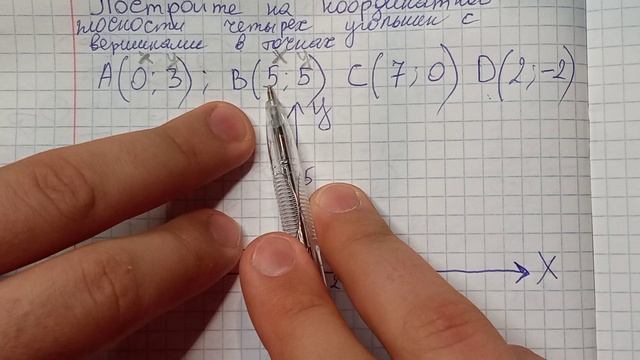 Постройте на координатной
плоскости четырех угольник с
вершинами в точках
x y x y
A(0; 3); B(5; 5) C(7; 0) D(2; -2)
y
5
X